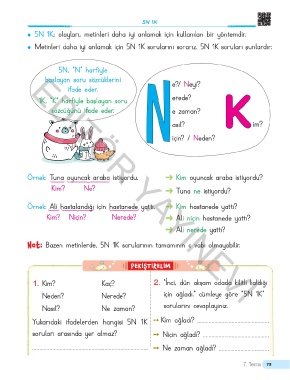 5N 1K
• 5N 1K; olayları, metinleri daha iyi anlamak için kullanılan bir yöntemdir.
• Metinleri daha iyi anlamak için 5N 1K sorularını sorarız. 5N 1K soruları şunlardır:
5N, "N" harfiyle
başlayan soru sözcüklerini
ifade eder.
1K, "K" harfiyle başlayan soru
sözcüğünü ifade eder.
N
e?/ Neyi?
erede?
e zaman?
asıl?
için? / Neden?
K
im?
Örnek: Tuna oyuncak araba istiyordu.
Kim? Ne?
→ Kim oyuncak araba istiyordu?
→ Tuna ne istiyordu?
Örnek: Ali hastalandığı için hastanede yattı.
Kim? Niçin? Nerede?
→ Kim hastanede yattı?
→ Ali niçin hastanede yattı?
→ Ali nerede yattı?
Not: Bazen metinlerde, 5N 1K sorularının tamamının cevabı olmayabilir.
PEKİŞTİRELİM
1. Kim? Kaç?
Neden? Nerede?
Nasıl? Ne zaman?
Yukarıdaki ifadelerden hangisi 5N 1K
soruları arasında yer almaz?
2. "İnci, dün akşam odada kilitli kaldığı
için ağladı." cümleye göre "5N 1K"
sorularını cevaplayınız.
→ Kim ağladı?
→ Niçin ağladı?
→ Ne zaman ağladı?
7. Tema 73
YAYINEVİ